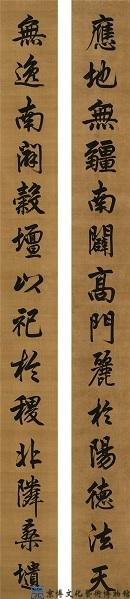 應地無疆南闢高門麗於陽德法天
無逸南闢穀壇以祀於稷北隣桑壝
京博文化藝術博物館